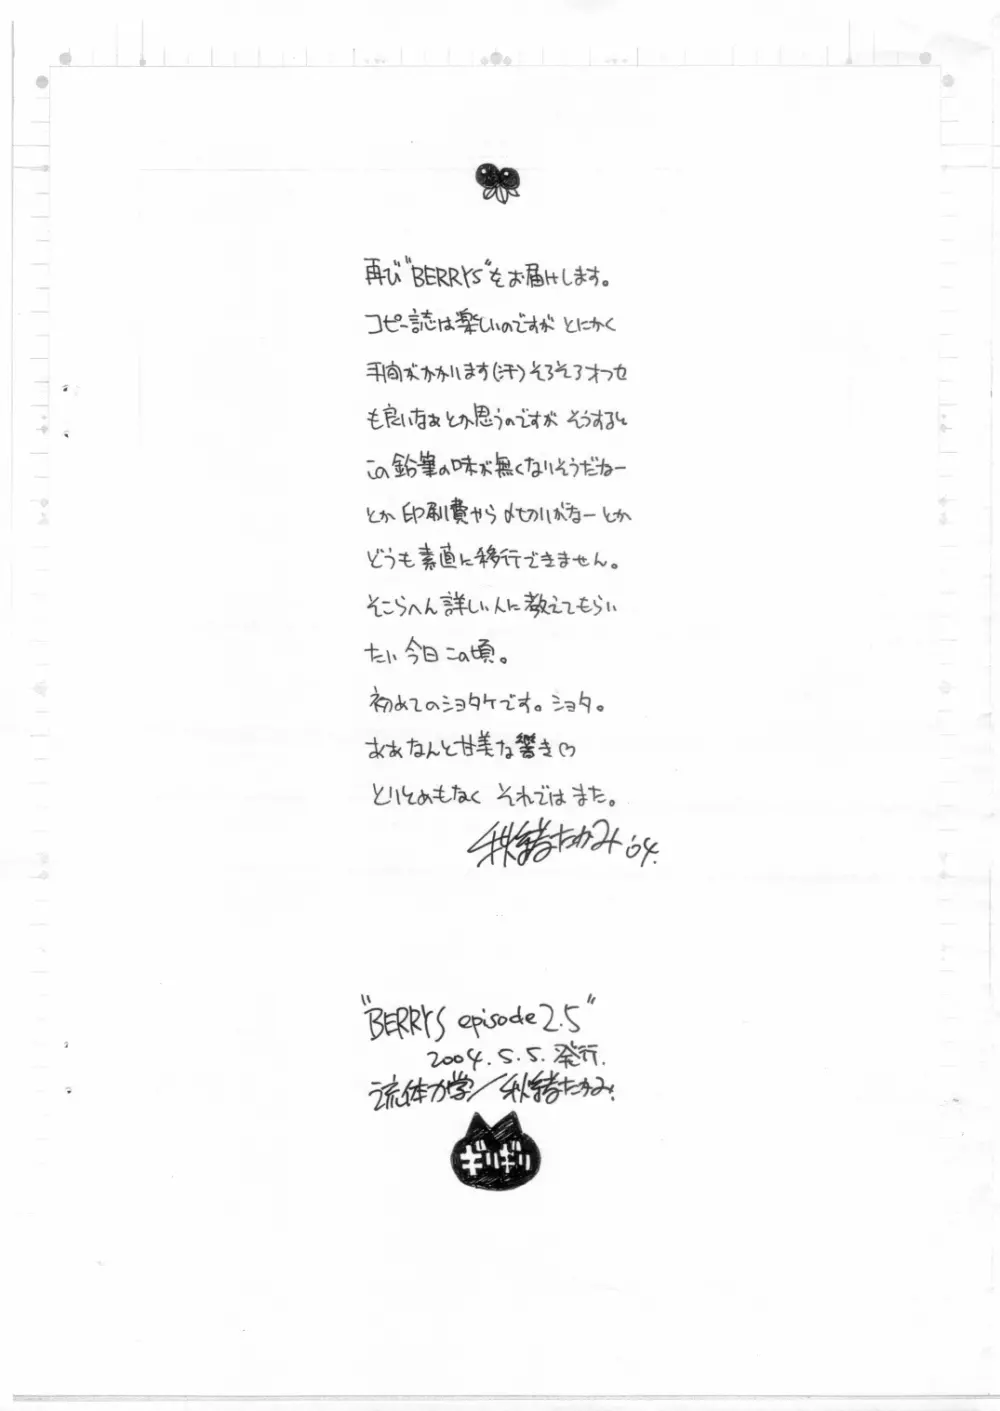 再び"BERRYS"をお届けします。
コピー誌は楽しいのですが とにかく
手間がかかります(汗)そろそろオフセ
も良いなぁとか思うのですが そうすると
この鉛筆の味が無くなりそうだなー
とか 印刷費やら〆切りがなー とか
どうも素直に移行できません。
そこらへん詳しい人に教えてもらい
たい 今日この頃。
初めてのショタケです。ショタ。
ああなんと甘美な響き♡
とりとめもなく それでは また。
秋緒たかみ '04.
"BERRYS episode 2.5"
2004. 5. 5. 発行.
流体力学/秋緒たかみ.
ギリギリ